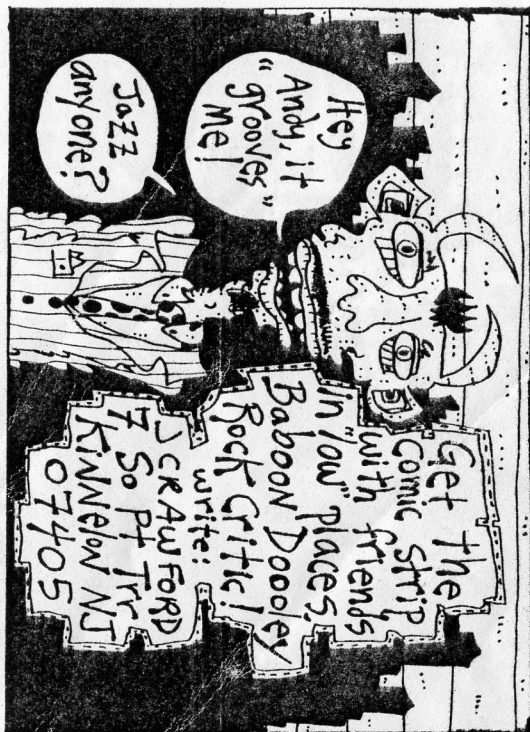 Hey
Andy, it
"grooves"
Me!
Jazz
anyone?
Get the
Comic Strip
with friends
In "low" places.
Baboon Doooley
Rock Critic!
write:
JCRAWFORD
7 So Pt Trr
KiNNEloN NJ
07405